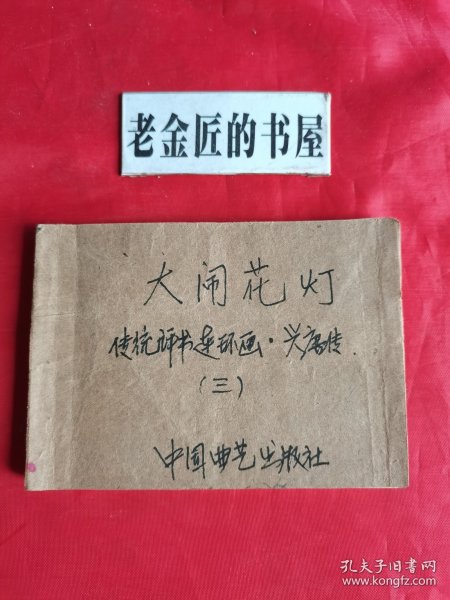 老金匠的书屋
大闹花灯
传统评书连环画·兴唐传
(三)
中国曲艺出版社
孔夫子旧书网
www.kongfz.com